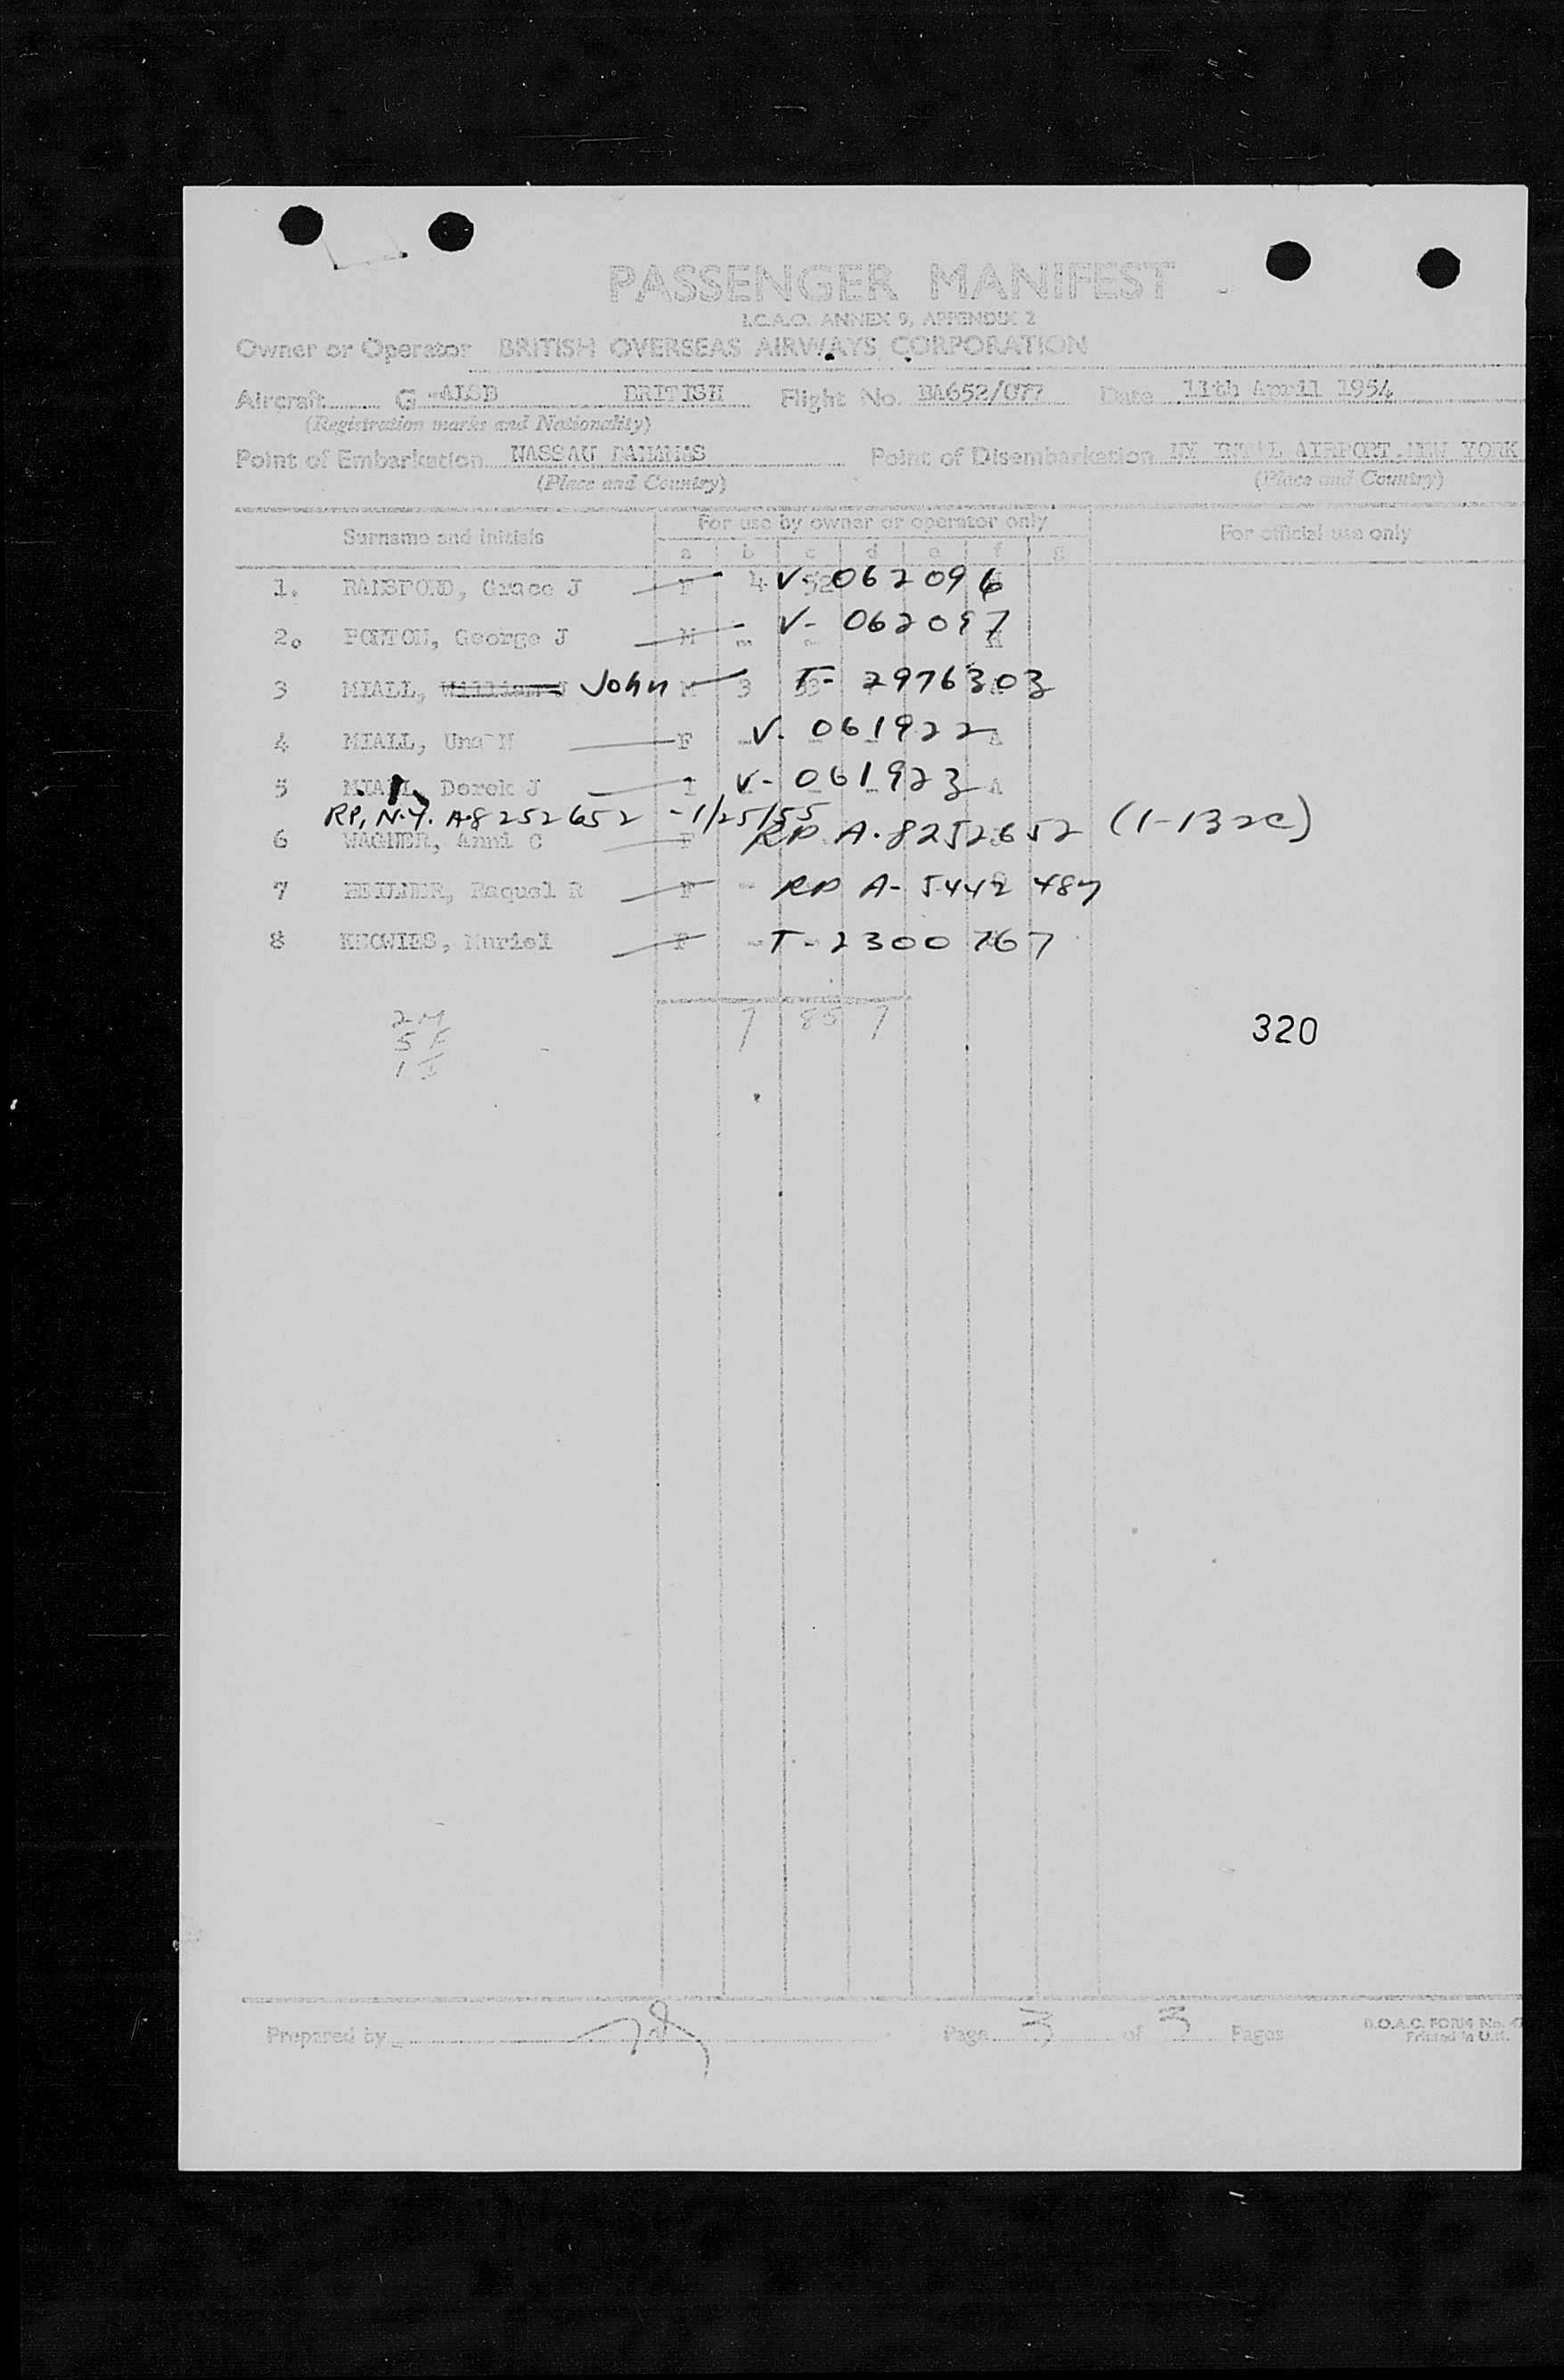 PASSENGER MANIFEST
I.C.A.O. ANNEX 9, APPENDIX 2
Owner or Operator BRITISH OVERSEAS AIRWAYS CORPORATION
Aircraft G -ALSB BRITISH Flight No. BA652/077 Date 11th April 1954
(Registration marks and Nationality)
Point of Embarkation NASSAU BAHAMAS Point of Disembarkation NY INT'L AIRPORT, NEW YORK
(Place and Country) (Place and Country)
Surname and initials For use by owner or operator only For official use only
a b c d e f g
1. Grace J F 4 52 V-062096
2. PONTON, George J M V- 062097
3 MIALL, William J John M 3 33 T- 2976303
4 MIALL, Una N F V- 061922 A
5 MIALL, Derek J I V- 061923 A
RP, N.Y. A-8252652 -1/25/55
6 WAGNER, Anni C F RP A-8252652 (1-132c)
7 Raquel R F RP A- 5442487
8 KNOWLES, Muriel F T-2300767
7 85 7
2 M
5 F
1 I
320
Prepared by Page 3 of 3 Pages
B.O.A.C. FORM No.
Printed in U.K.